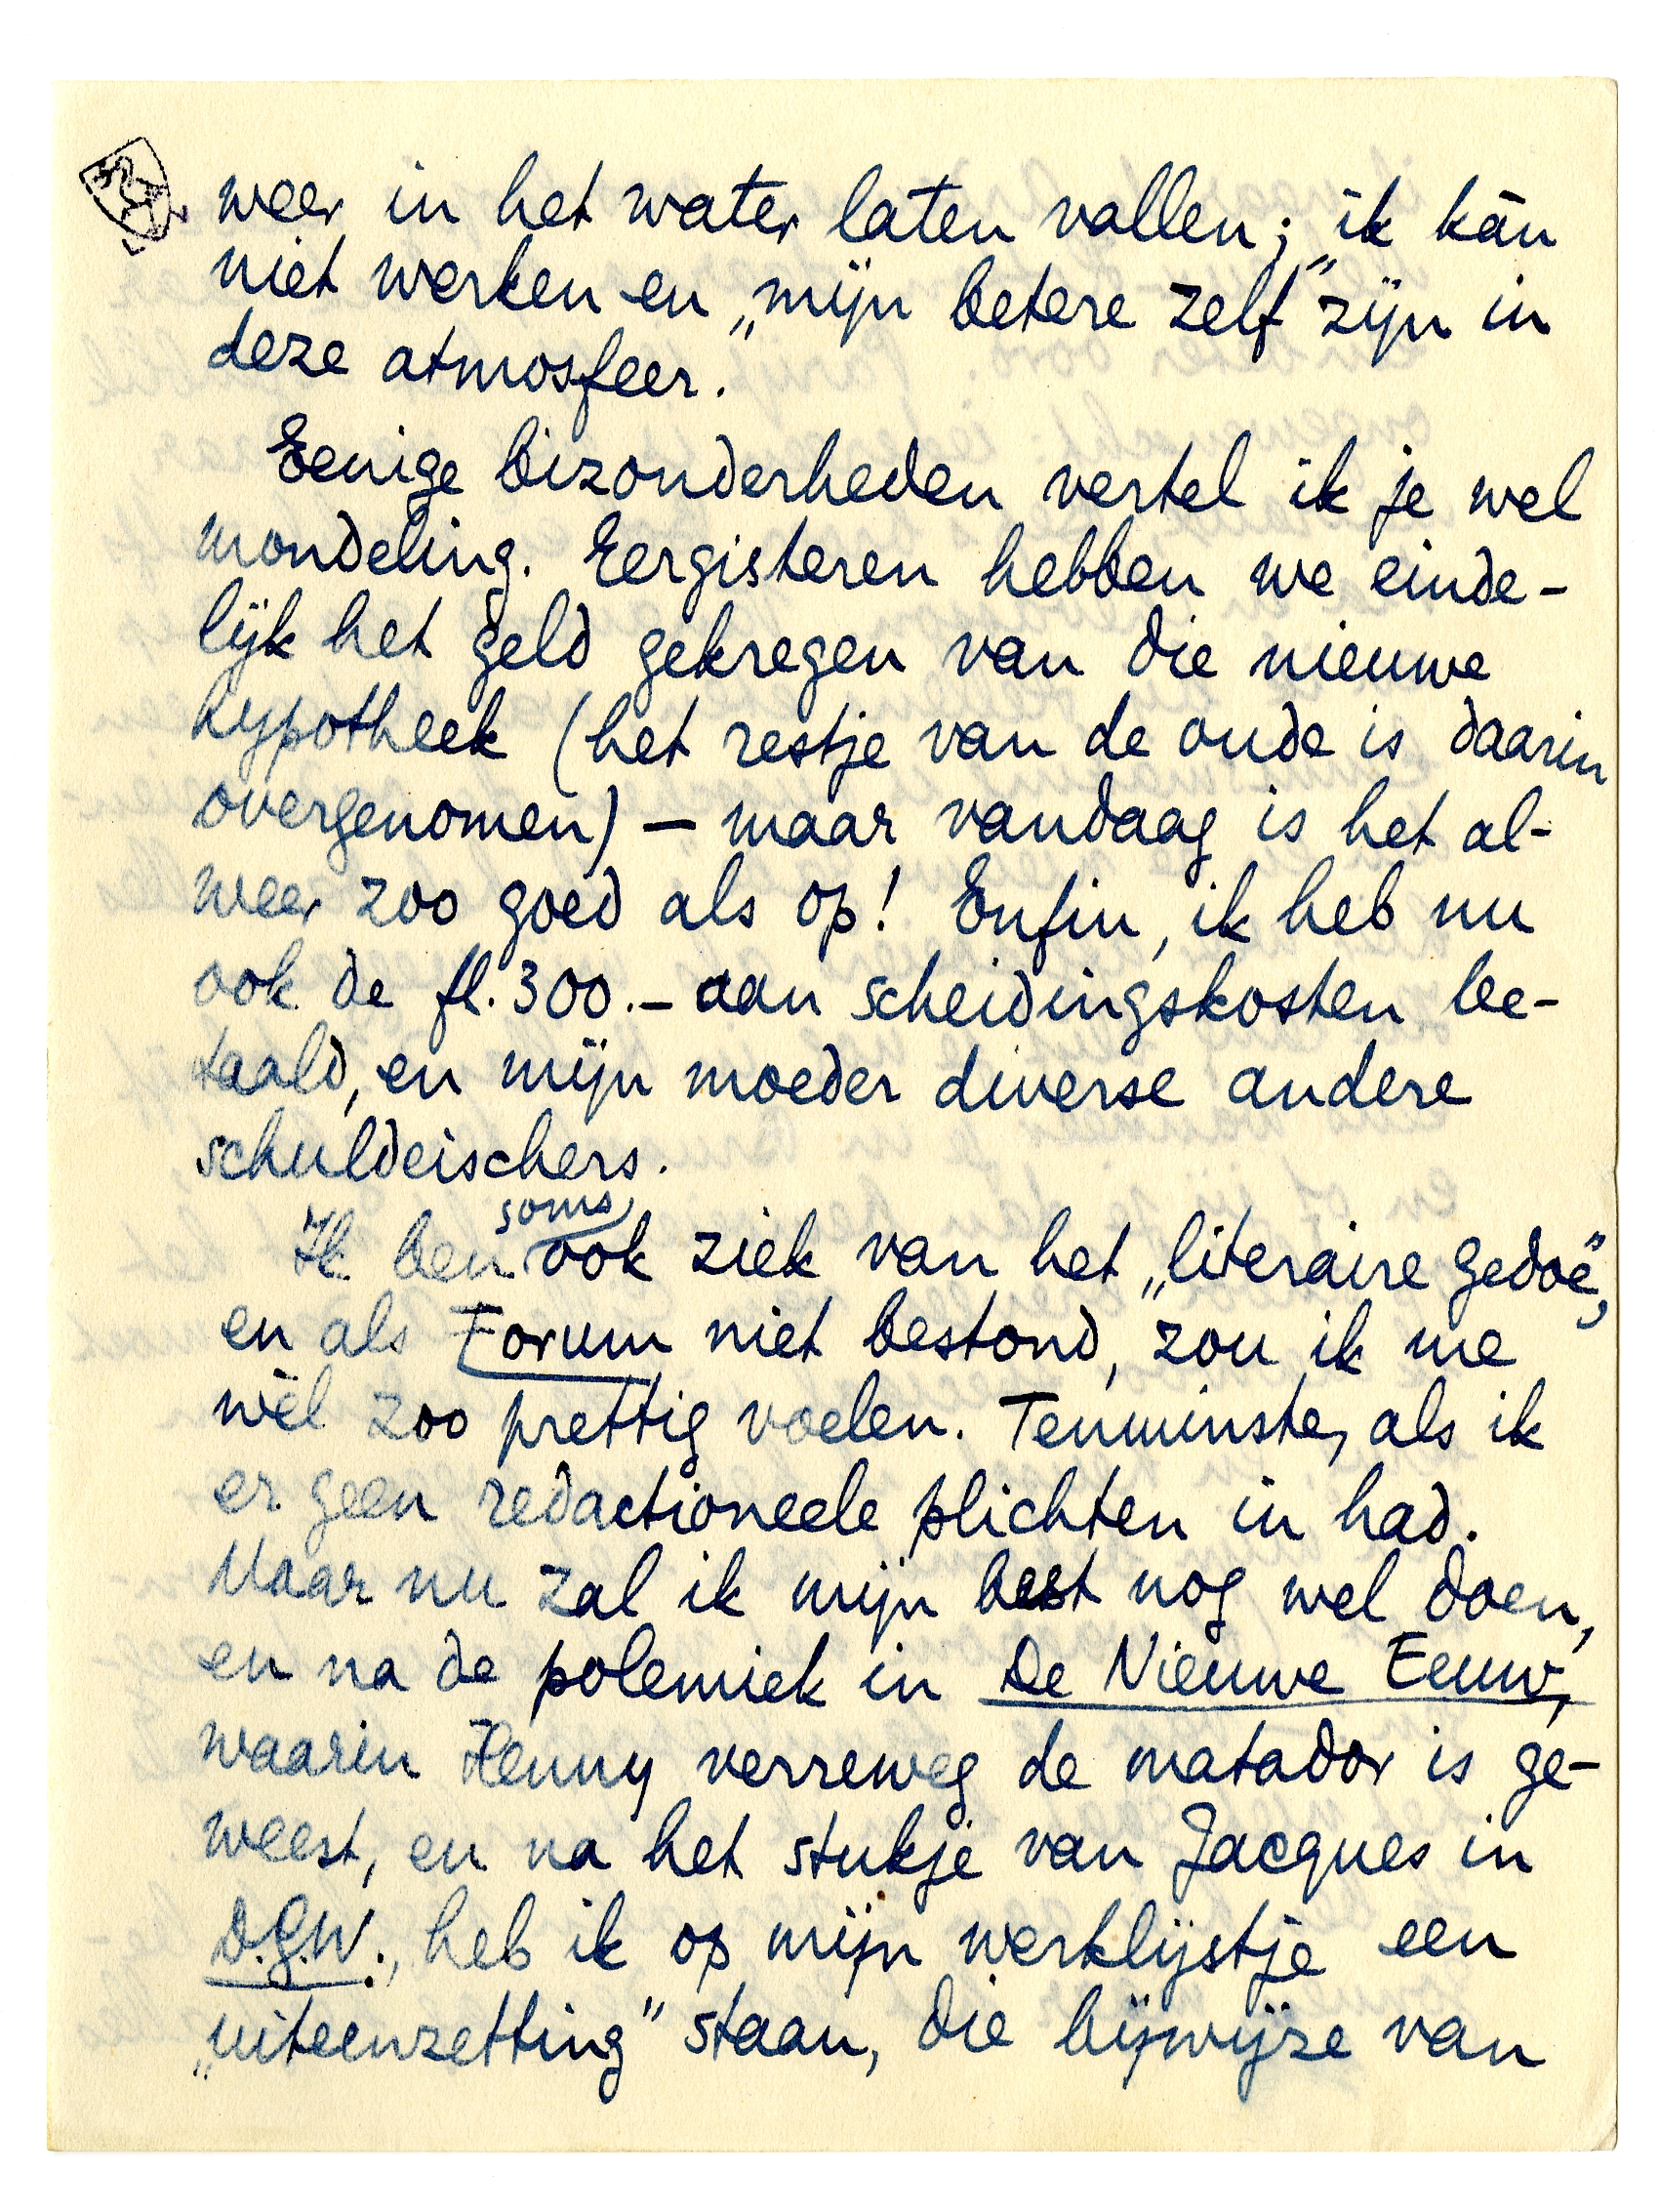 weer in het water laten vallen; ik kàn
niet werken en „mijn betere zelf” zijn in
deze atmosfeer.
Eenige bizonderheden vertel ik je wel
mondeling. Eergisteren hebben we einde-
lijk het geld gekregen van die nieuwe
hypotheek (het restje van de oude is daarin
overgenomen) — maar vandaag is het al-
weer zoo goed als op! Enfin, ik heb nu
ook de fl. 300.– aan scheidingskosten be-
taald, en mijn moeder diverse andere
schuldeischers.
Ik ben soms ook ziek van het „literaire gedoe”,
en als Forum niet bestond, zou ik me
wèl zoo prettig voelen. Tenminste, als ik
er geen redactioneele plichten in had.
Maar nu zal ik mijn best nog wel doen,
en na de polemiek in De Nieuwe Eeuw,
waarin Henny verreweg de matador is ge-
weest, en na het stukje van Jacques in
D.G.W., heb ik op mijn werklijstje een
„uiteenzetting” staan, die bijwijze van